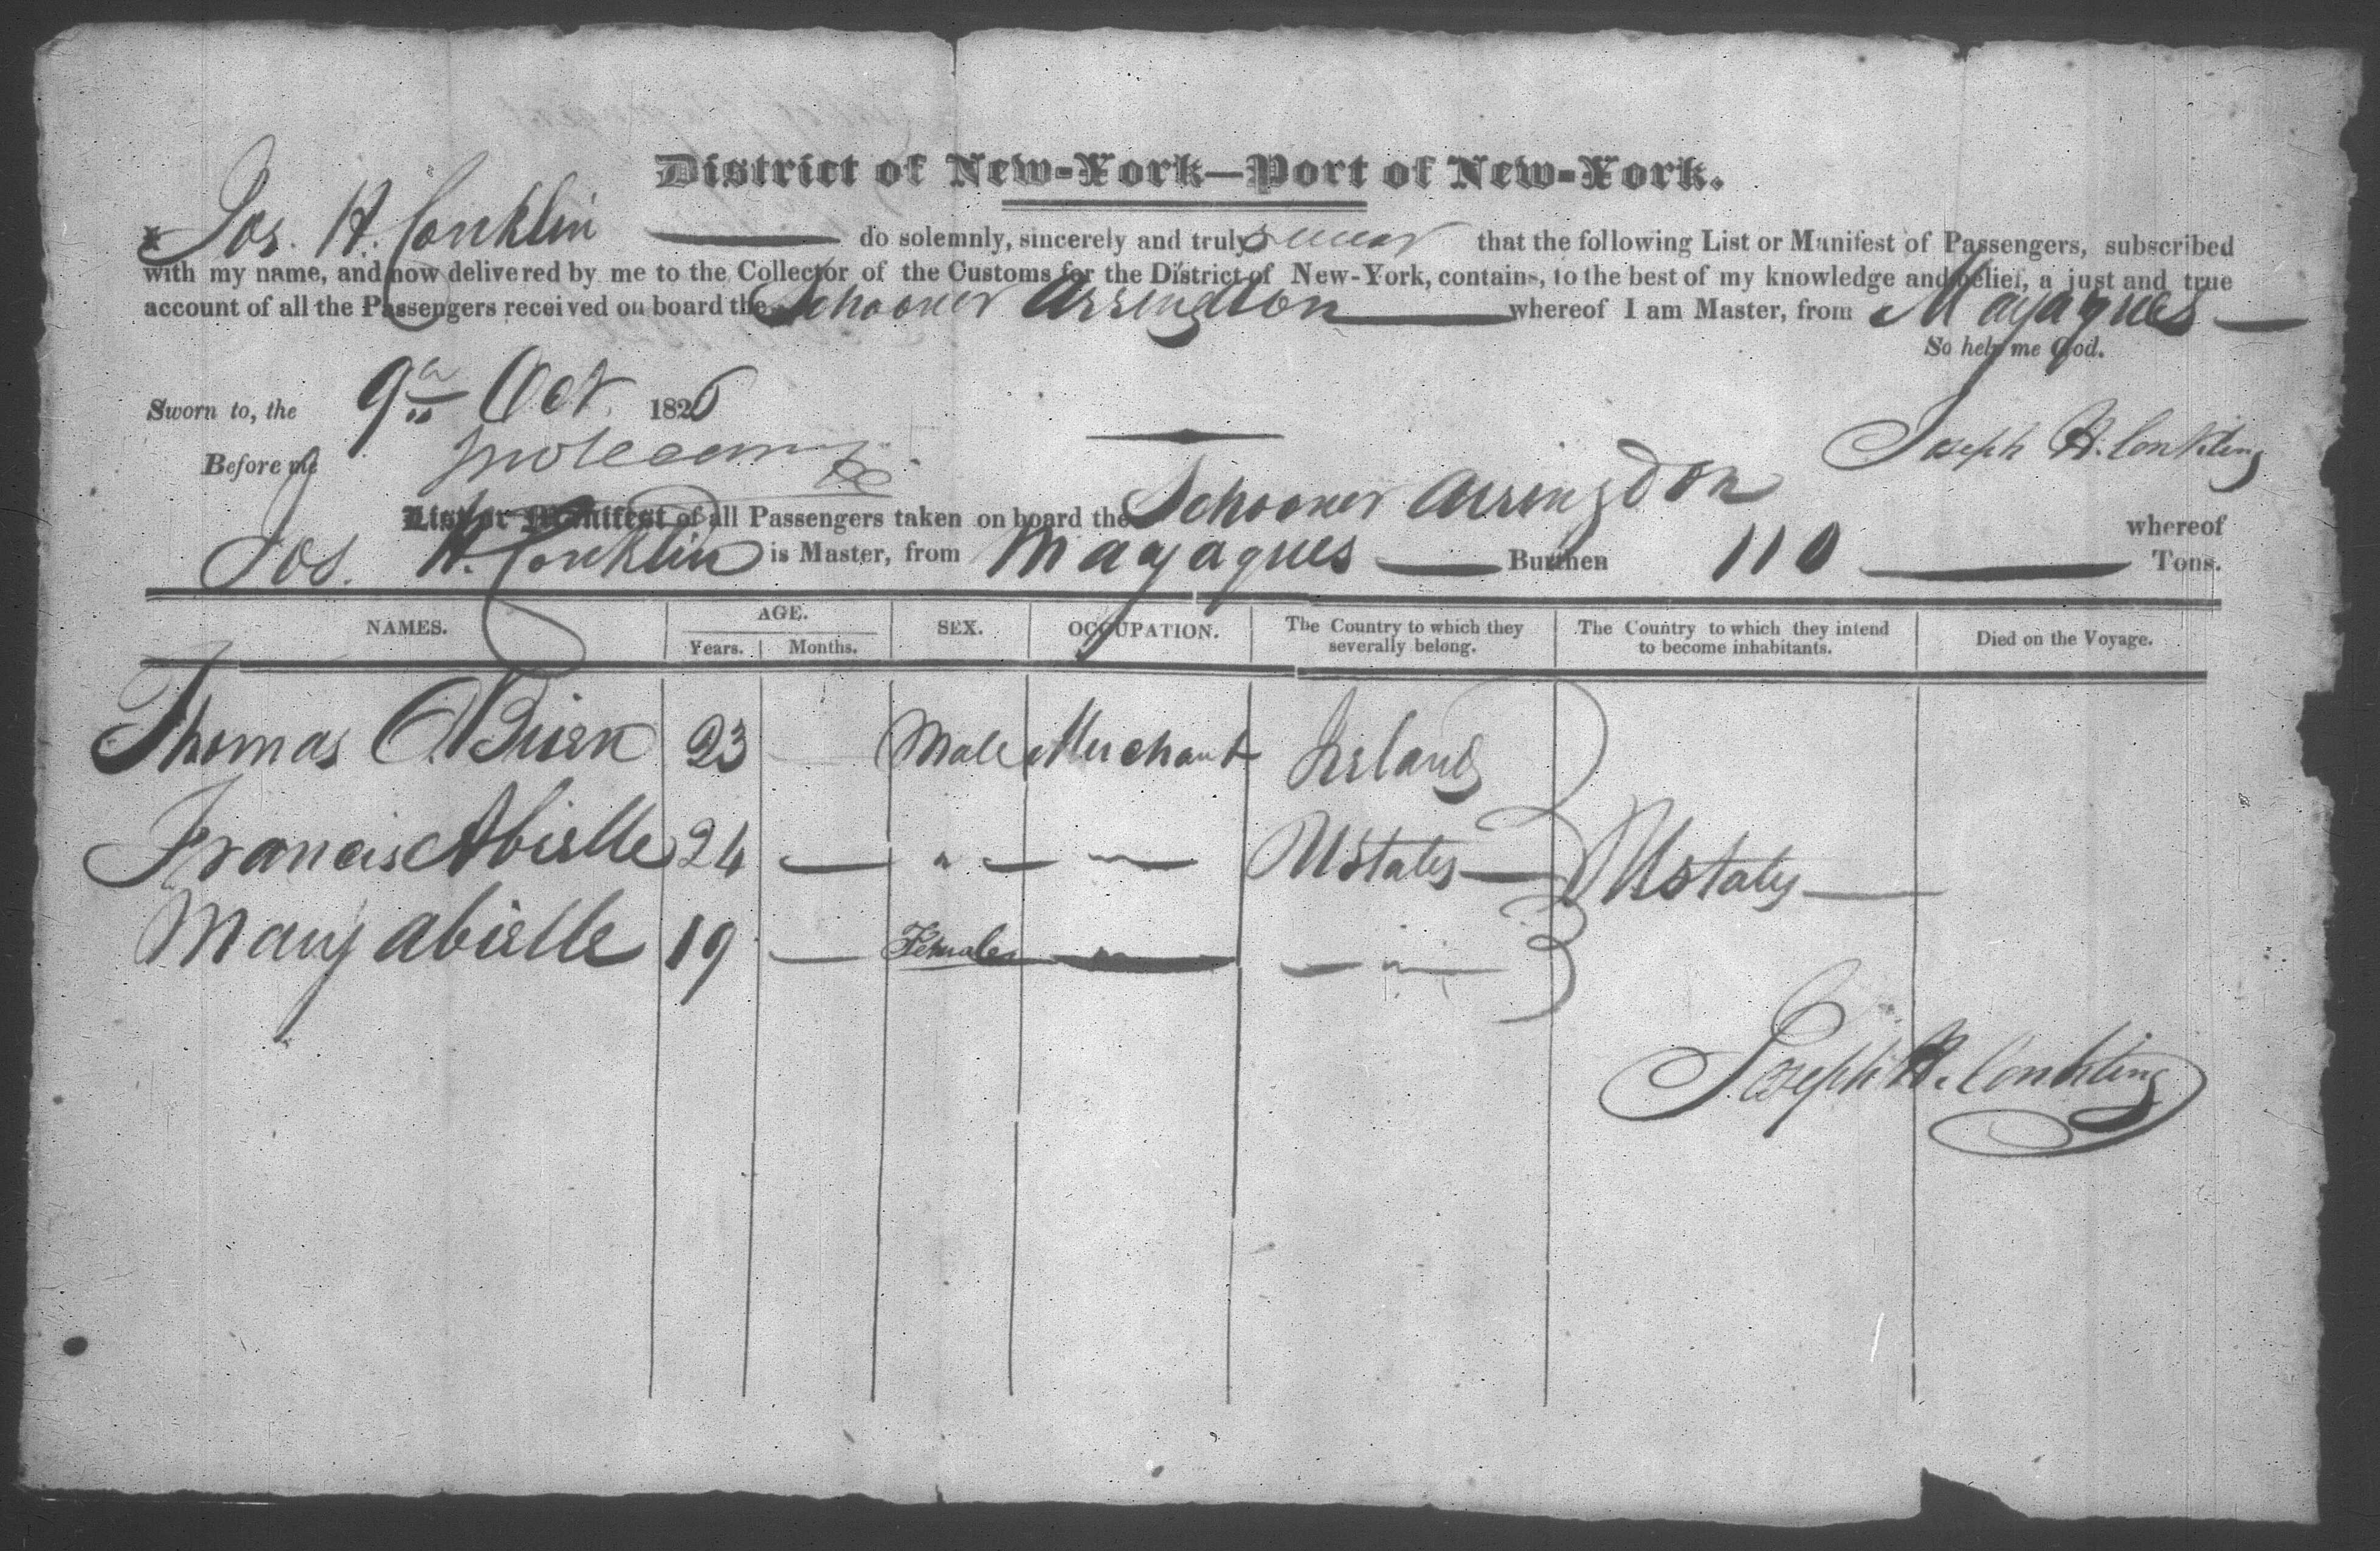 District of New-York—Port of New-York.
I Jos. H. Conklin do solemnly, sincerely and truly swear that the following List or Manifest of Passengers, subscribed
with my name, and now delivered by me to the Collector of the Customs for the District of New-York, contains, to the best of my knowledge and belief, a just and true
account of all the Passengers received on board the Schooner Arringdon whereof I am Master, from Mayagues
So help me God.
Sworn to, the 9th Oct 1826
Joseph H. Conkling
Before me
List or Manifest of all Passengers taken on board the Schooner Arringdon whereof
Jos. H. Conklin is Master, from Mayagues Burthen 110 Tons.
NAMES. AGE. Years. Months. SEX. OCCUPATION. The Country to which they severally belong. The Country to which they intend to become inhabitants. Died on the Voyage.
Thomas OBrien 23 Male Merchant Ireland
Francis Abielle 24 — " — — " — Ustates — Ustates —
Mary Abielle 19 — Female — " — — " —
Joseph H. Conkling